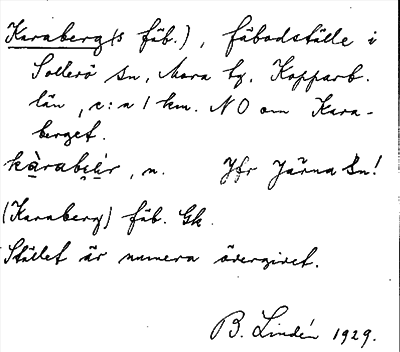 Karaberg(s fäb.), fäbodställe i
Sollerö sn, Mora tg, Kopparb.
län, c:a 1 km. NO om Kara-
berget.
kàrabær, n. Jfr Järna sn!
(Karaberg) fäb. Gk.
Stället är numera övergivet.
B. Lindén 1929.